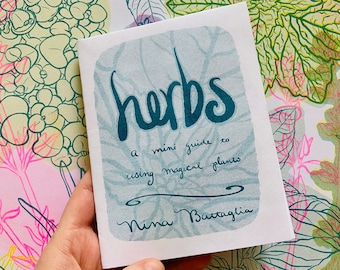 herbs
a mini guide to
using magical plants
Nina Battaglia